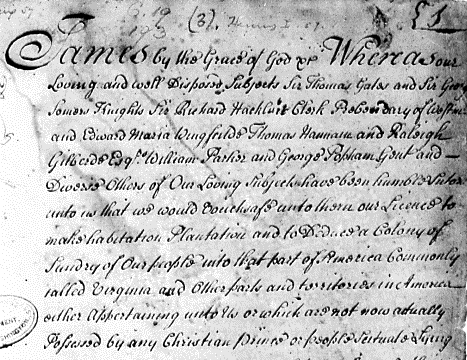 (3).
James by the Grace of God &c Whereas our
Loving and well Disposed Subjects Sir Thomas Gates and Sir George
Somers Knights Sir Richard Hackluit Clerk Prebendary of Westmr
and Edward Maria Wingfeilde Thomas Hannam and Raleigh
Gilberde Esqrs William Parker and George Popham Gent and
Diverse Others of Our Loving Subjects have been humble Sutors
unto us that we would vouchsafe unto them our Licence to
make habitation Plantation and to Deduce a Colony of
Sundry of Our people into that part of America Commonly
called Virginia and Other parts and territories in America
either Appertaining unto Us or which are not now actually
Possessed by any Christian prince or people Scituate Lying